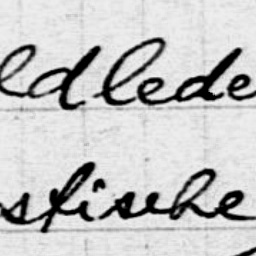 ldlede
stische